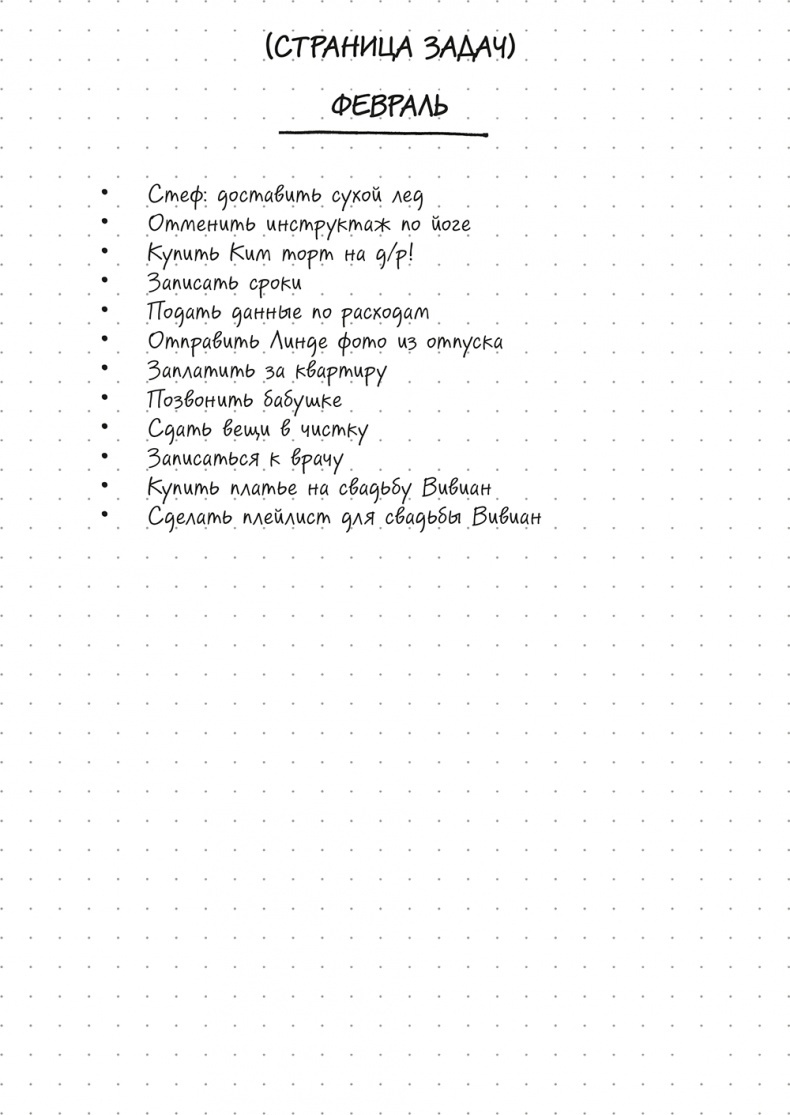 (СТРАНИЦА ЗАДАЧ)
ФЕВРАЛЬ
• Стеф: доставить сухой лед
• Отменить инструктаж по йоге
• Купить Ким торт на д/р!
• Записать сроки
• Подать данные по расходам
• Отправить Линде фото из отпуска
• Заплатить за квартиру
• Позвонить бабушке
• Сдать вещи в чистку
• Записаться к врачу
• Купить платье на свадьбу Вивиан
• Сделать плейлист для свадьбы Вивиан